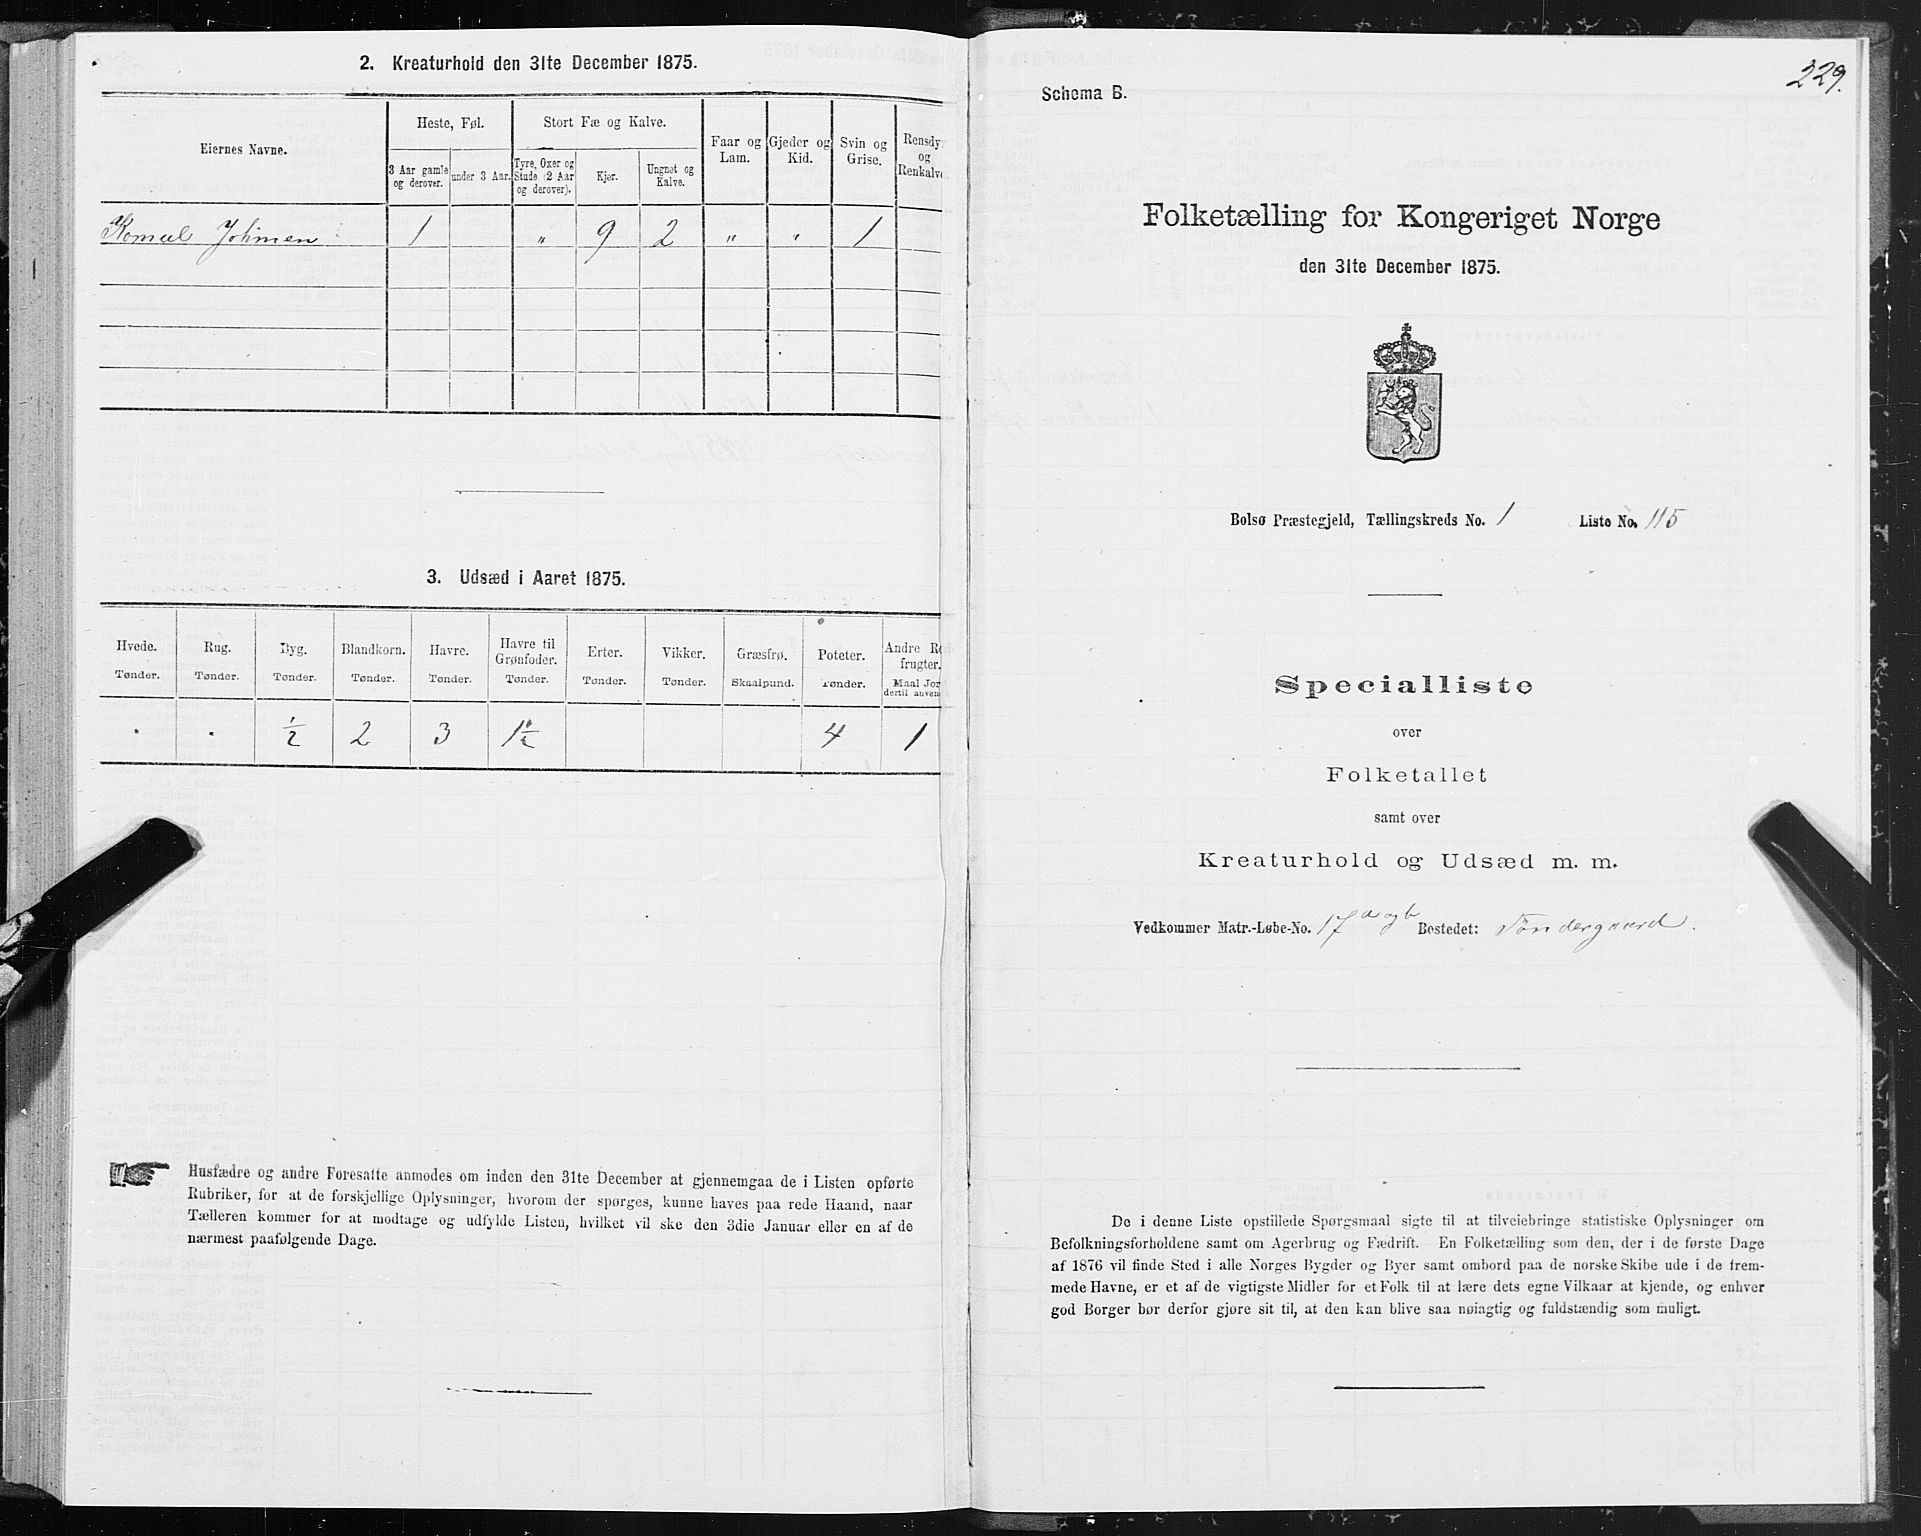 2. Kreaturhold den 31te December 1875.
Eiernes Navne.
Heste, Føl.
Stort Fæ og Kalve.
Faar og Lam.
Gjeder og Kid.
Svin og Grise.
Rensdy
og
Renkalve
3 Aar gamle og derover.
under 3 Aar.
Tyre, Oxer og Stude (2 Aar og derover).
Kjør.
Ungnøt og Kalve.
1 " 9 2 " " 1
3. Udsæd i Aaret 1875.
Hvede. Rug. Byg. Blandkorn. Havre. Havre til Grønfoder. Erter. Vikker. Græsfrø. Poteter. Andre Ro
frugter.
Tønder. Tønder. Tønder. Tønder. Tønder. Tønder. Tønder. Tønder. Skaalpund. Tønder. Maal Jor
dertil anven
" " ½ 2 3 1½ 4 1
Husfædre og andre Foresatte anmodes om inden den 31te December at gjennemgaa de i Listen opførte
Rubriker, for at de forskjellige Oplysninger, hvorom der spørges, kunne haves paa rede Haand, naar
Tælleren kommer for at modtage og udfylde Listen, hvilket vil ske den 3die Januar eller en af de
nærmest paafølgende Dage.
229.
Schema B.
Folketælling for Kongeriget Norge
den 31te December 1875.
Bolsø Præstegjeld, Tællingskreds No. 1 Liste No. 115
Specialliste
over
Folketallet
samt over
Kreaturhold og Udsæd m. m.
Vedkommer Matr.-Løbe-No. 17 a og b Bostedet: Töndergaard.
De i denne Liste opstillede Spørgsmaal sigte til at tilveiebringe statistiske Oplysninger om
Befolkningsforholdene samt om Agerbrug og Fædrift. En Folketælling som den, der i de første Dage
af 1876 vil finde Sted i alle Norges Bygder og Byer samt ombord paa de norske Skibe ude i de frem-
mede Havne, er et af de vigtigste Midler for et Folk til at lære dets egne Vilkaar at kjende, og enhver
god Borger bør derfor gjøre sit til, at den kan blive saa nøiagtig og fuldstændig som muligt.